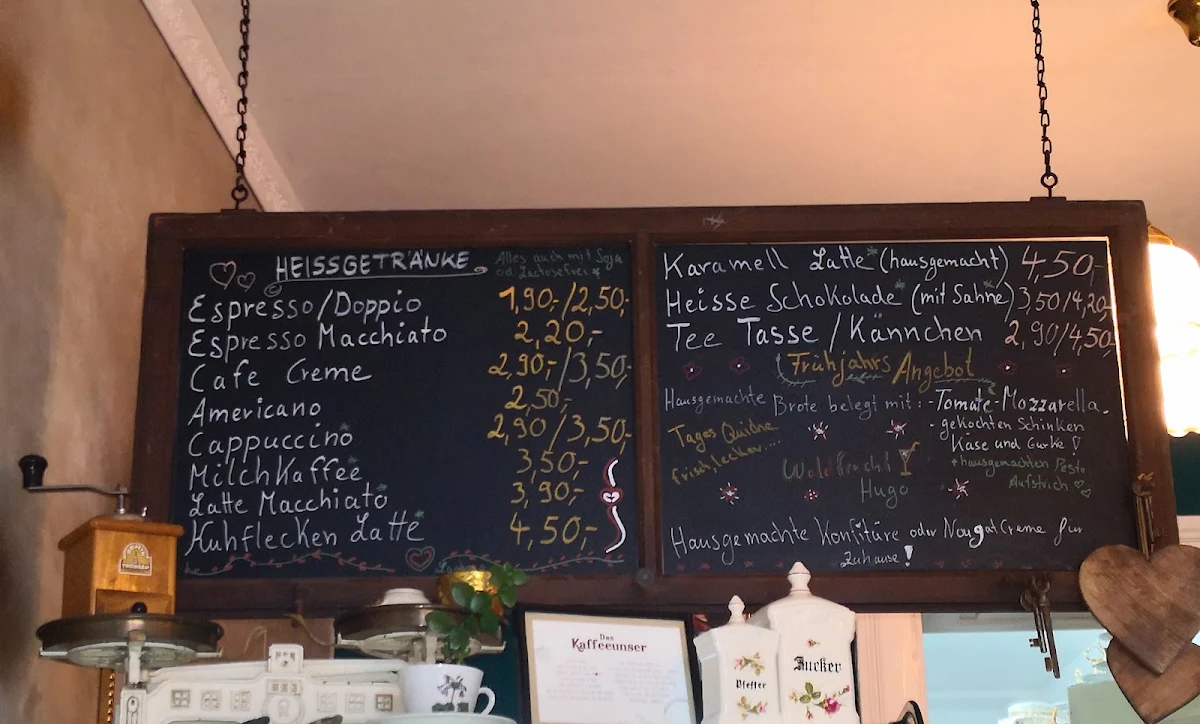 HEISSGETRÄNKE
Alles auch mit Soja
od. Lactosefrei *
Espresso/Doppio 1,90,-/2,50,-
Espresso Macchiato 2,20,-
Cafe Creme 2,90,-/3,50,-
Americano 2,50,-
Cappuccino 2,90/3,50,-
Milchkaffee 3,50,-
Latte Macchiato 3,90,-
Kuhflecken Latte 4,50,-
Karamell Latte* (hausgemacht) 4,50,-
Heisse Schokolade* (mit Sahne) 3,50/4,20,-
Tee Tasse / Kännchen 2,90/4,50,-
Frühjahrs Angebot
Hausgemachte Brote belegt mit: - Tomate-Mozzarella
- gekochten Schinken
Käse und Gurke!
+ hausgemachten Pesto
Aufstrich
Tages Quiche
frisch, lecker....
Waldfrucht
Hugo
Hausgemachte Konfitüre oder Nougatcreme für
Zuhause!
Das
Kaffeeunser
Pfeffer
Zucker